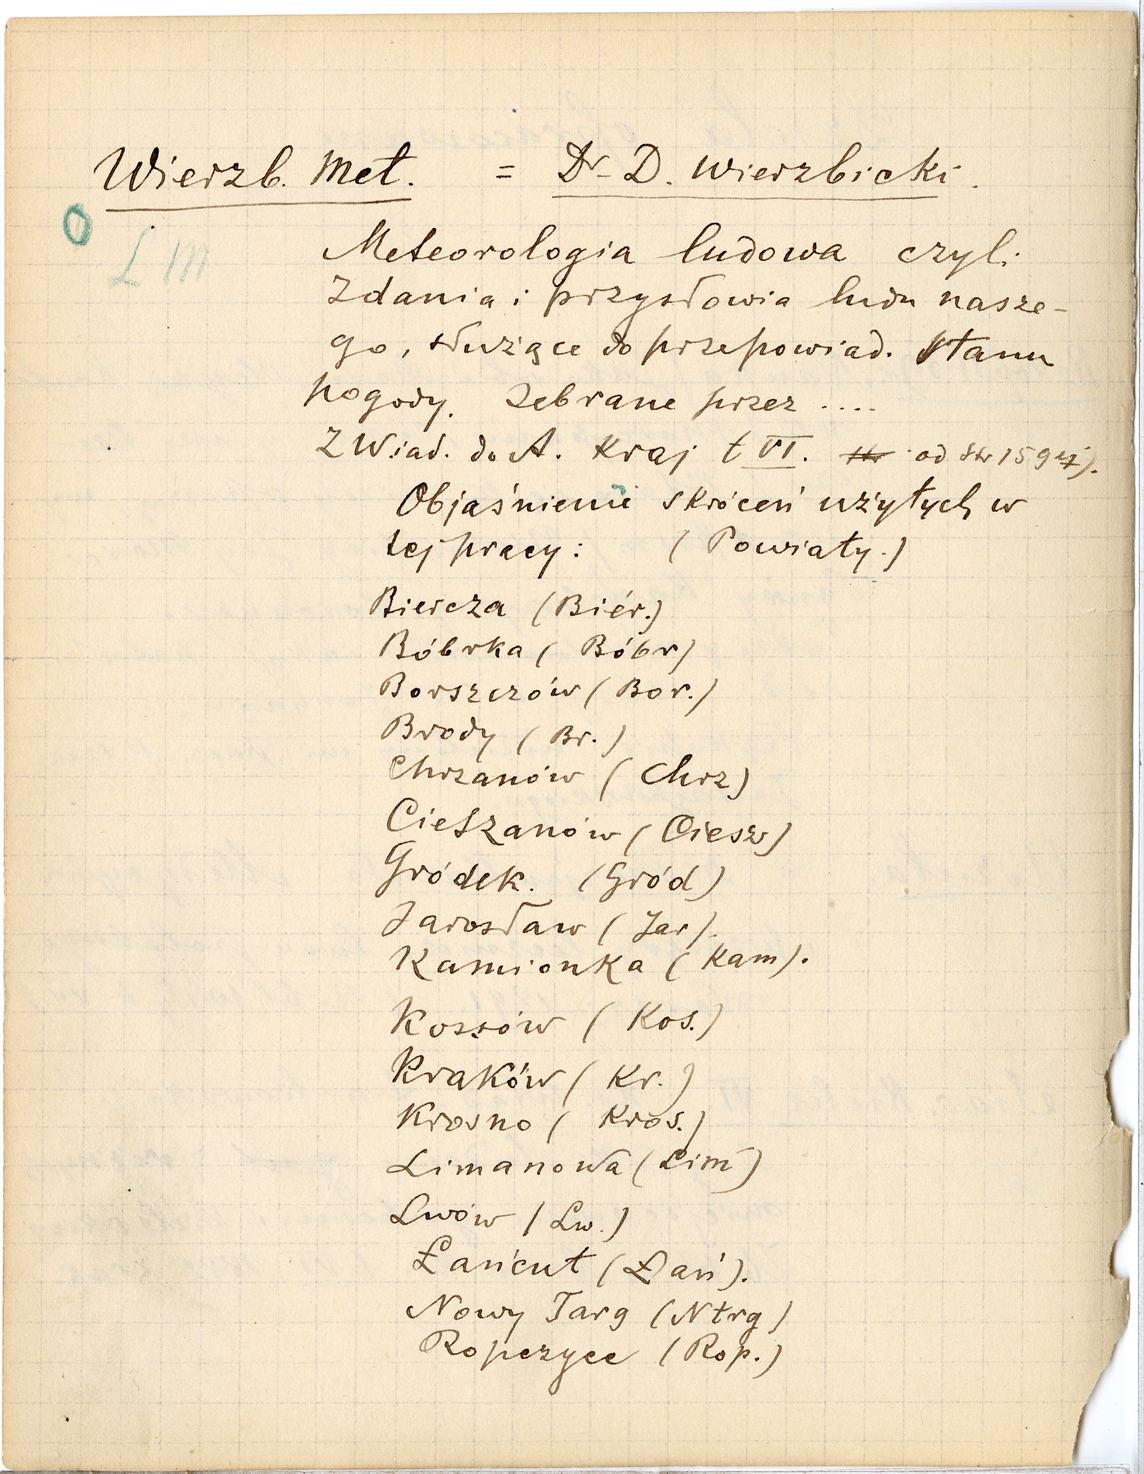 Wierzb. Met. = Dr. D. Wierzbicki.
L M
Meteorologia ludowa czyli
zdania i przysłowia ludu nasze-
go, służące do przepowiad. stanu
pogody. Zebrane przez ....
Z Wiad. do A. Kraj t VI. od str 159
Objaśnienie skróceń użytych w
tej pracy: (Powiaty.)
Biercza (Biér.)
Bóbrka (Bóbr)
Borszczów (Bor.)
Brody (Br.)
Chrzanów (Chrz)
Cieszanów (Ciesz)
Gródek. (Gród)
Jarosław (Jar).
Kamionka (Kam).
Kossów (Kos.)
Kraków (Kr.)
Krosno (Kros.)
Limanowa (Lim)
Lwów (Lw.)
Łańcut (Łań).
Nowy Targ (Ntrg)
Ropczyce (Rop.)